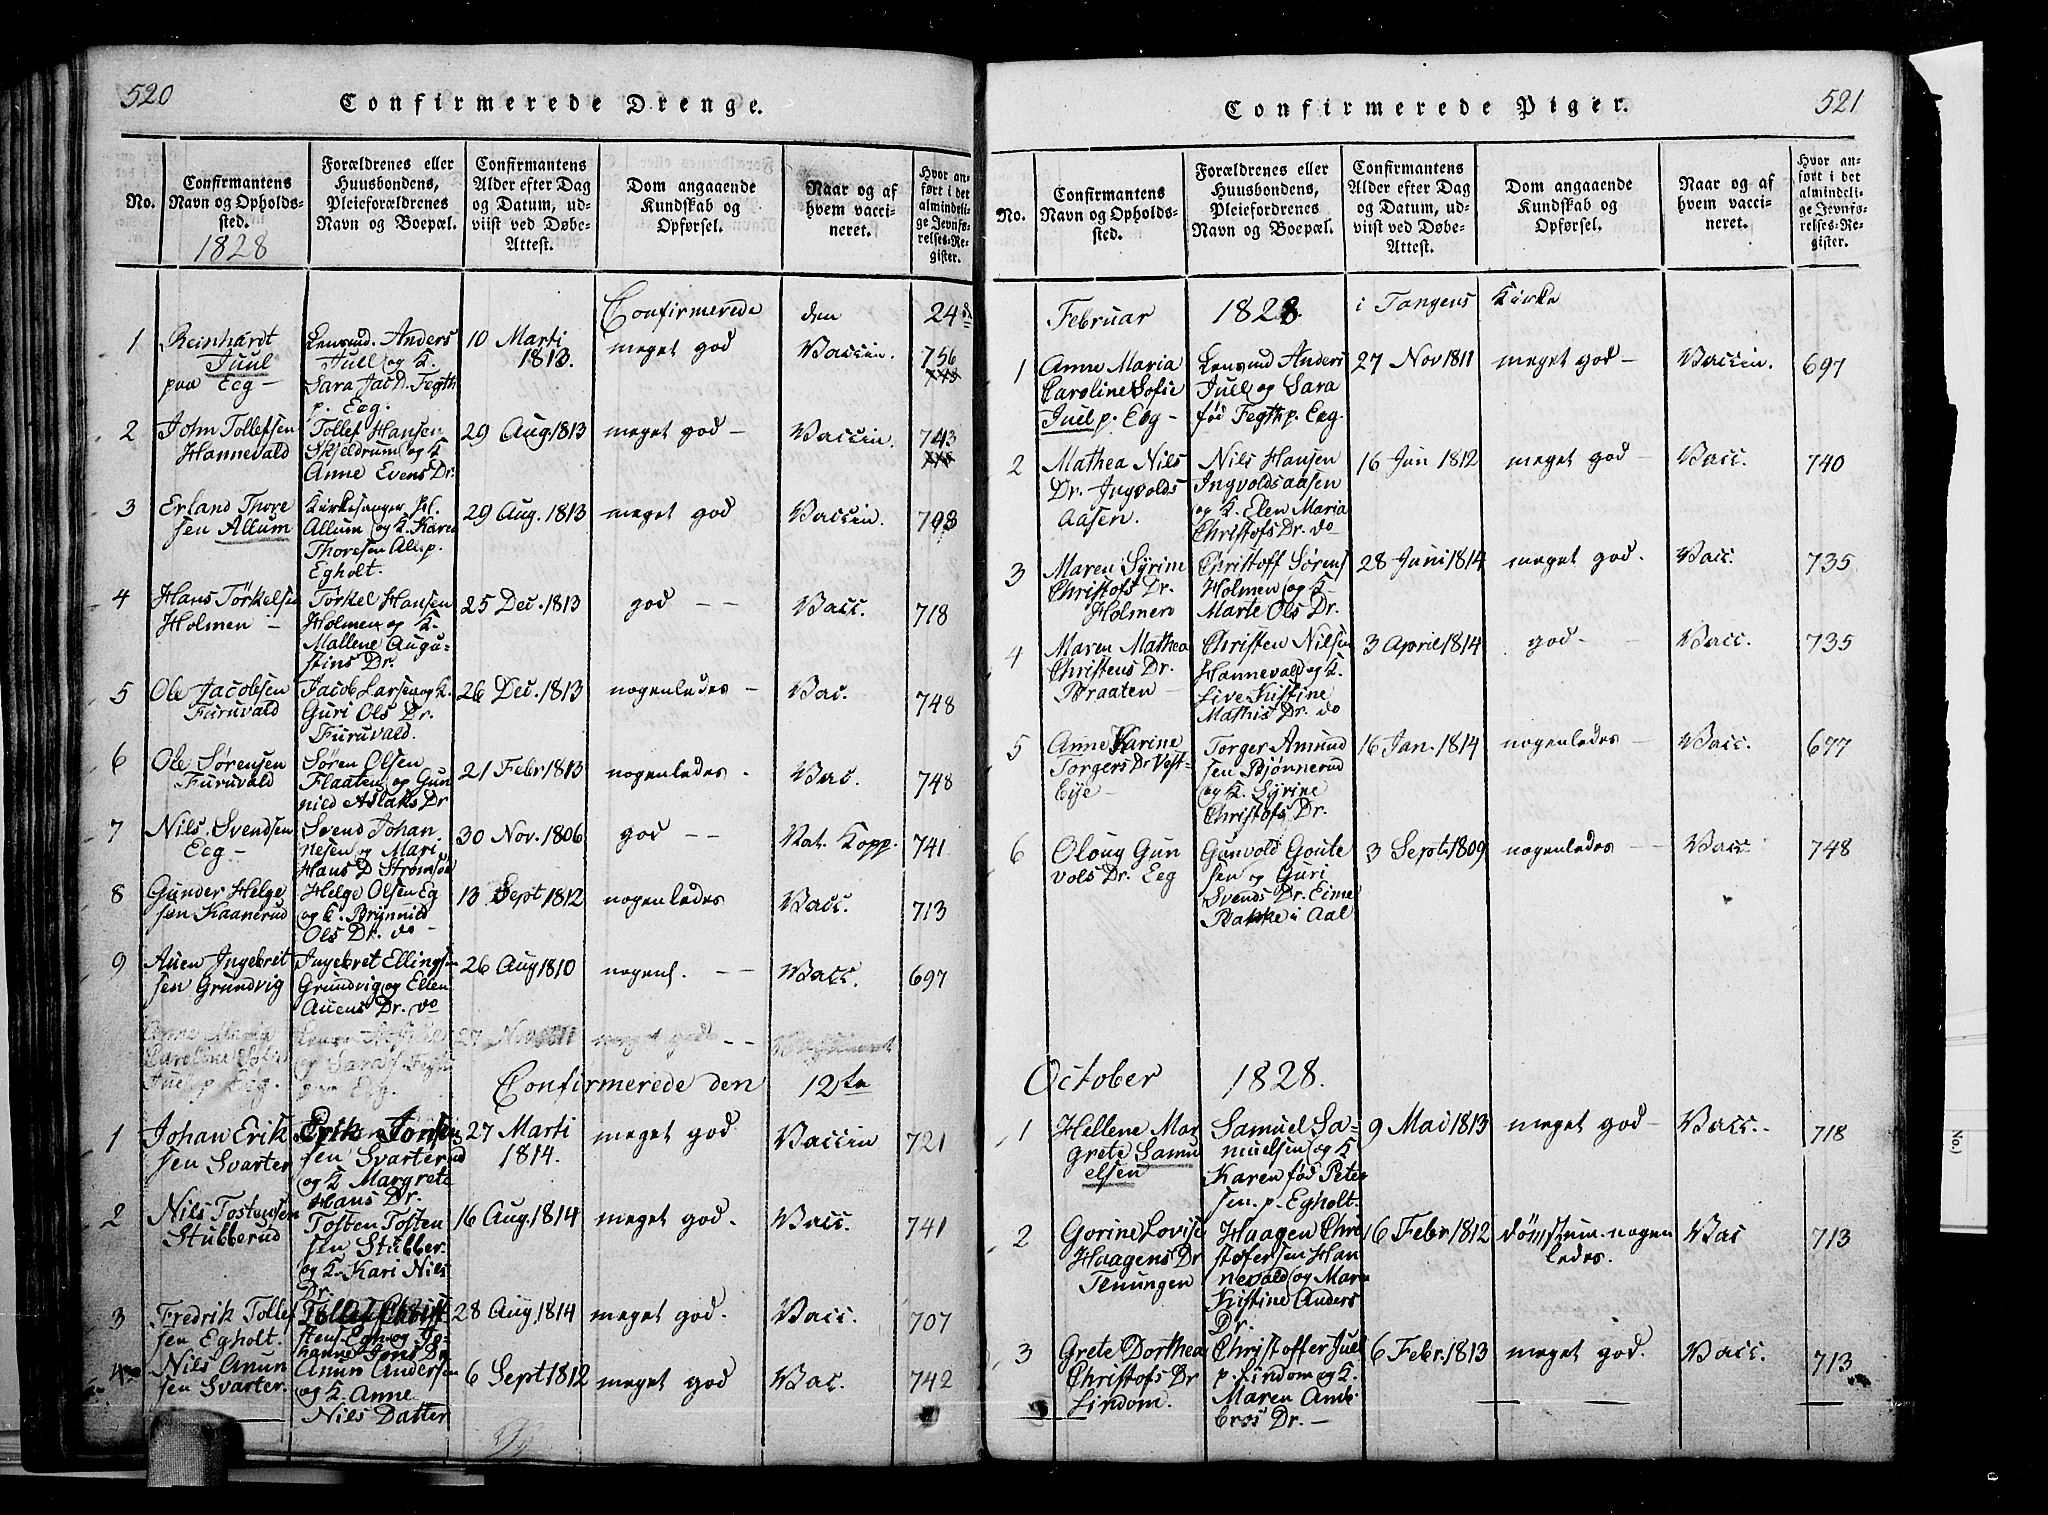 520
Confirmerede Drenge.
No.
Confirmantens
Navn og Opholds-
sted.
1828
Forældrenes eller
Huusbondens,
Pleieforældrenes
Navn og Boepæl.
Confirmantens
Alder efter Dag
og Datum, ud-
viist ved Døbe-
Attest.
Dom angaaende
Kundskab og
Opførsel.
Naar og af
hvem vacci-
neret.
Hvor an-
ført i det
almindeli-
ge Jevnfø-
relses-Re-
gister.
Confirmerede den 24
1
Reinhardt
Juul
paa Eeg -
Lensmd. Anders
Juel og K.
Sara Jac D. Fegth
p. Eeg.
10 Marti
1813.
meget god
Vaccin.
756
2
John Tollefsen
Hannevald
Tollef Hansen
Skjeldrum og K
Anne Evens Dr.
29 Aug. 1813
meget god -
Vaccin.
743
3
Erland Thore
sen Allum
Kirkesanger
Allum og K. Karen
Thoresen All. p.
Egholt.
29 Aug. 1813
meget god
Vaccin.
703
4
Hans Törkelsen
Holmen -
Törkel Hansen
Holmen og K.
Mallene Augu-
stins Dr.
25 Dec. 1813
god - -
Vacc.
718
5
Ole Jacobsen
Furuvald
Jacob Larsen og K.
Guri Ols Dr.
Furuvald.
26 Dec. 1813
nogenledes -
Vac.
748
6
Ole Sörensen
Furuvald
Sören Olsen
Flaaten og Gun
nild Aslaks Dr
21 Febr 1813
nogenledes -
Vac.
748
7
Nils Svendsen
Eeg -
Svend Johan
nesen og Mari
Hans D Strømsöe
30 Nov. 1806
god - -
Nat. Kopp.
741
8
Gunder Helge
sen Kaanerud
Helge Olsen Eg
og K. Brynnild
Ols Dr. do -
13 Sept 1812
nogenledes
Vacc.
713
9
Auen Ingebrit
sen Grundvig
Ingebret Ellings
Grundvig og Ellen
Auens Dr. do
26 Aug 1810
nogenl. - -
Vacc.
697
Anne Maria
Caroline Sofie
Juel p Eeg.
og Sara f Fegth
Eeg.
27 Nov 1811
meget god - -
Confirmerede den 12te
1
Johan Erik
sen Svarter
Erik Jon
sen Svarterud
og K Margrete
Hans Dr.
27 Marti
1814.
meget god
Vaccin
721
2
Nils Tostensen
Stubberud
Tosten Tosten
sen Stubber.
og K. Kari Nils
Dr.
16 Aug. 1814
meget god.
Vacc.
741
3
Fredrik Tollef
sen Egholt.
Tollef Christ
stens Egh og Jo-
hanne Jons Dr
28 Aug. 1814
meget god.
Vacc.
707
4
Nils Anun
sen Svarter.
Anun Andersen
og K. Anne
Nils Datter
6 Sept 1812
meget god
Vac.
742
Confirmerede Piger.
521
No.
Confirmantens
Navn og Opholds-
sted.
Forældrenes eller
Huusbondens,
Pleiefordrenes
Navn og Boepæl.
Confirmantens
Alder efter Dag
og Datum, ud-
viist ved Døbe-
Attest.
Dom angaaende
Kundskab og
Opførsel.
Naar og af
hvem vacci-
neret.
Hvor an-
ført i det
almindeli-
ge Jevnfø-
relses-Re-
gister.
Februar 1828 i Tangens Kirke
1
Anne Maria
Caroline Sofie
Juel p. Eeg -
Lensmd Anders
Juel og Sara
fød Fegth p. Eeg.
27 Nov 1811
meget god -
Vaccin.
697
2
Mathea Nils
Dr. Ingvolds
Aasen.
Nils Hansen
Ingvoldsaasen
og K. Elen Maria
Christofs Dr. do
16 Jun 1812
meget god -
Vacc.
740
3
Maren Syrine
Christofs Dr.
Holmen
Christoff Sørens
Holmen og K -
Marte Ols Dr.
28 Juni 1814
meget god.
Vacc.
735
4
Maren Mathea
Christens Dr.
Braaten -
Christen Nilsen
Hannevald og K.
Live Kistine
Mathis Dr. do
3 April 1814
god - -
Vacc.
735
5
Anne Karine
Torgers Dr Vest-
Eije -
Torger Amund
sen Bjønnerud
og K. Syrine
Christofs Dr.
16 Jan. 1814
nogenledes -
Vacc.
677
6
Oloug Gun
vols Dr. Eeg
Gunvold Goute
sen og Guri
Svends Dr. Eime
Bakke i Aal
3 Sept. 1809
nogenledes - -
Vacc
748
October 1828.
1
Hellene Mar
grete Samu
elsen
Samuel Sa-
muelsen og K
Karen fød Peter
sen. p. Egholt.
9 Mai 1813
meget god -
Vacc. -
718
2
Gorine Lovise
Haagens Dr
Tenungen
Haagen Chri
stofersen Han
nevald og Maren
Kistine Anders
Dr.
16 Febr 1812
nogen
ledes.
Vac
713
3
Grete Dorthea
Christofs Dr
Lindom.
Christoffer Juel
p. Lindom og K.
Maren Amb
bros Dr. -
6 Febr. 1813
meget god.
Vacc.
713
No)